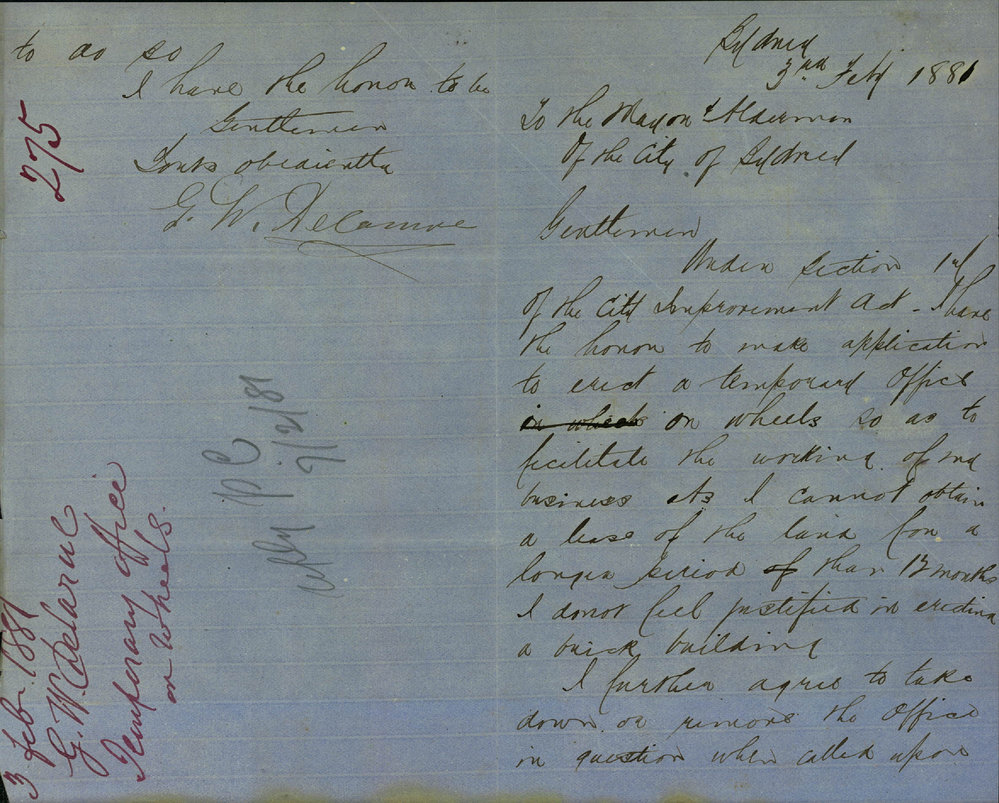 Sydney
3rd Feby 1881
To the Mayor & Aldermen
Of the City of Sydney
Gentlemen
Under Section 1st
Of the City Improvement Act - I have
the honor to make application
to erect a temporary Office
in wheels on wheels so as to
facilitate the working of my
business As I cannot obtain
a lease of the land for a
longer period of than 12 months
I do not feel justified in erecting
a brick building
I further agree to take
down or remove the Office
in question when called upon
to do so
I have the honor to be
Gentlemen
Yours obediently
G. W. Delarue
275
P C
7/2/81
3 Feb. 1881
G. W. Delarue
Temporary office
on wheels.